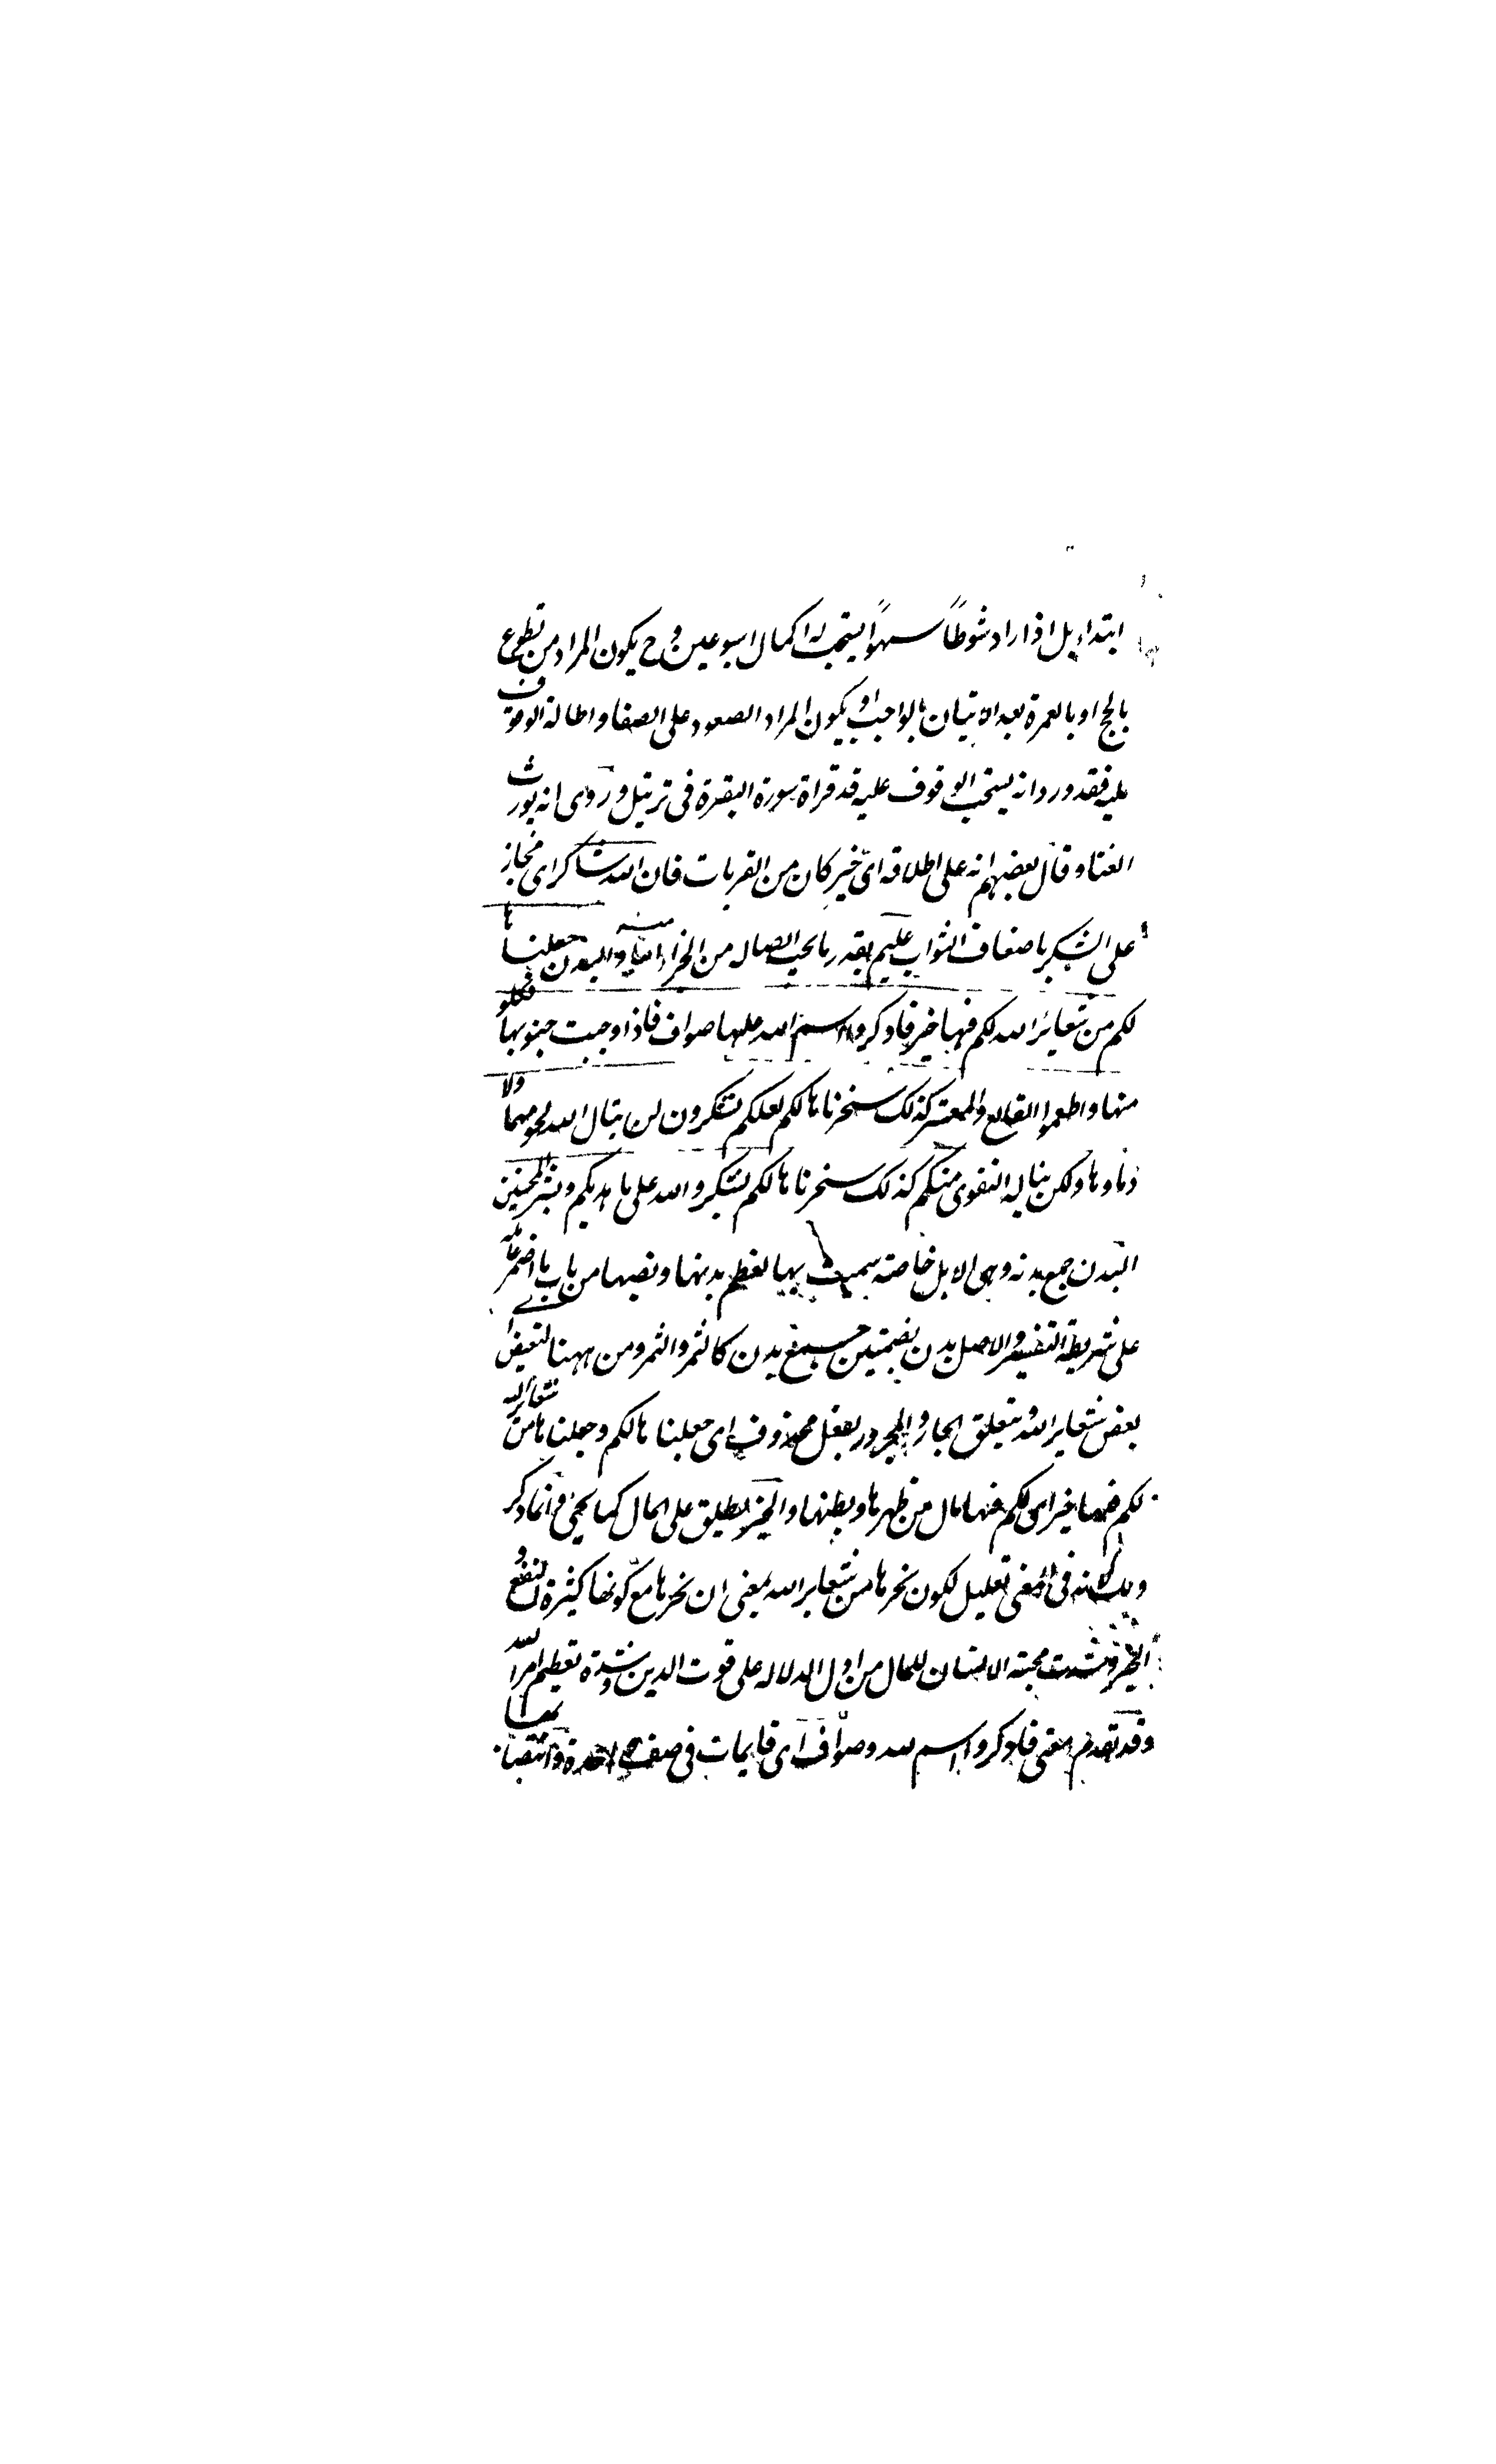 ابتداء بل اذا زاد شوطاً سهواً يستحب له اكمال اسبوعين وح يكون المراد من تطوع
بالحج او بالعمرة بعد الاتيان بالواجب او يكون المراد الصعود على الصفا واطالة الوقوف
عليه فقد ورد انه يستحب الوقوف عليه قدر قراة سورة البقرة فى ترتيل وروى انه يورث
الغنا وقال بعضهم انه على اطلاقه اىّ خير كان من القربات فان الله شاكر اى مجاز
على الشكر باضعاف الثواب عليم بقدر ما يجب ايصاله من الجزاء والبدن جعلناها
لكم من شعائر الله لكم فيها خير فاذكروا اسم الله عليها صواف فاذا وجبت جنوبها فكلوا
منها واطعموا القانع والمعتر كذلك سخرناها لكم لعلكم تشكرون لن ينال الله لحومها ولا
دماوها ولكن يناله التقوى منكم كذلك سخرناها لكم لتكبروا الله على ما هديكم وبشر المحسنين
البدن جمع بدنه وهى الابل خاصة سميت بها لعظم بدنها ونصبها من باب ما اضمر عامله
على شريطة التفسير والاصل بدن بضمتين جمع بدن كالثمر والثمر ومن ههنا للتبعيض اى
بعض شعاير الله ويتعلق الجار والمجرور بفعل محذوف اى جعلناها لكم وجعلناها من شعاير الله
لكم فيها خير اى لكم فيها مال من ظهرها وبطنها والخير يطلق على المال كما يجئ وانما ذكر
ذلك لانه فى المعنى تعليل لكون نحرها من شعاير الله بمعنى ان نحرها مع كونها كثيرة النفع و
الخير وشدت محبة الانسان للمال من اول الدلاله على قوت الدين وشدة تعظيم امر الله
وقد تقدم معنى فاذكروا اسم الله وصواف اى قايمات فى صف وانتصابها